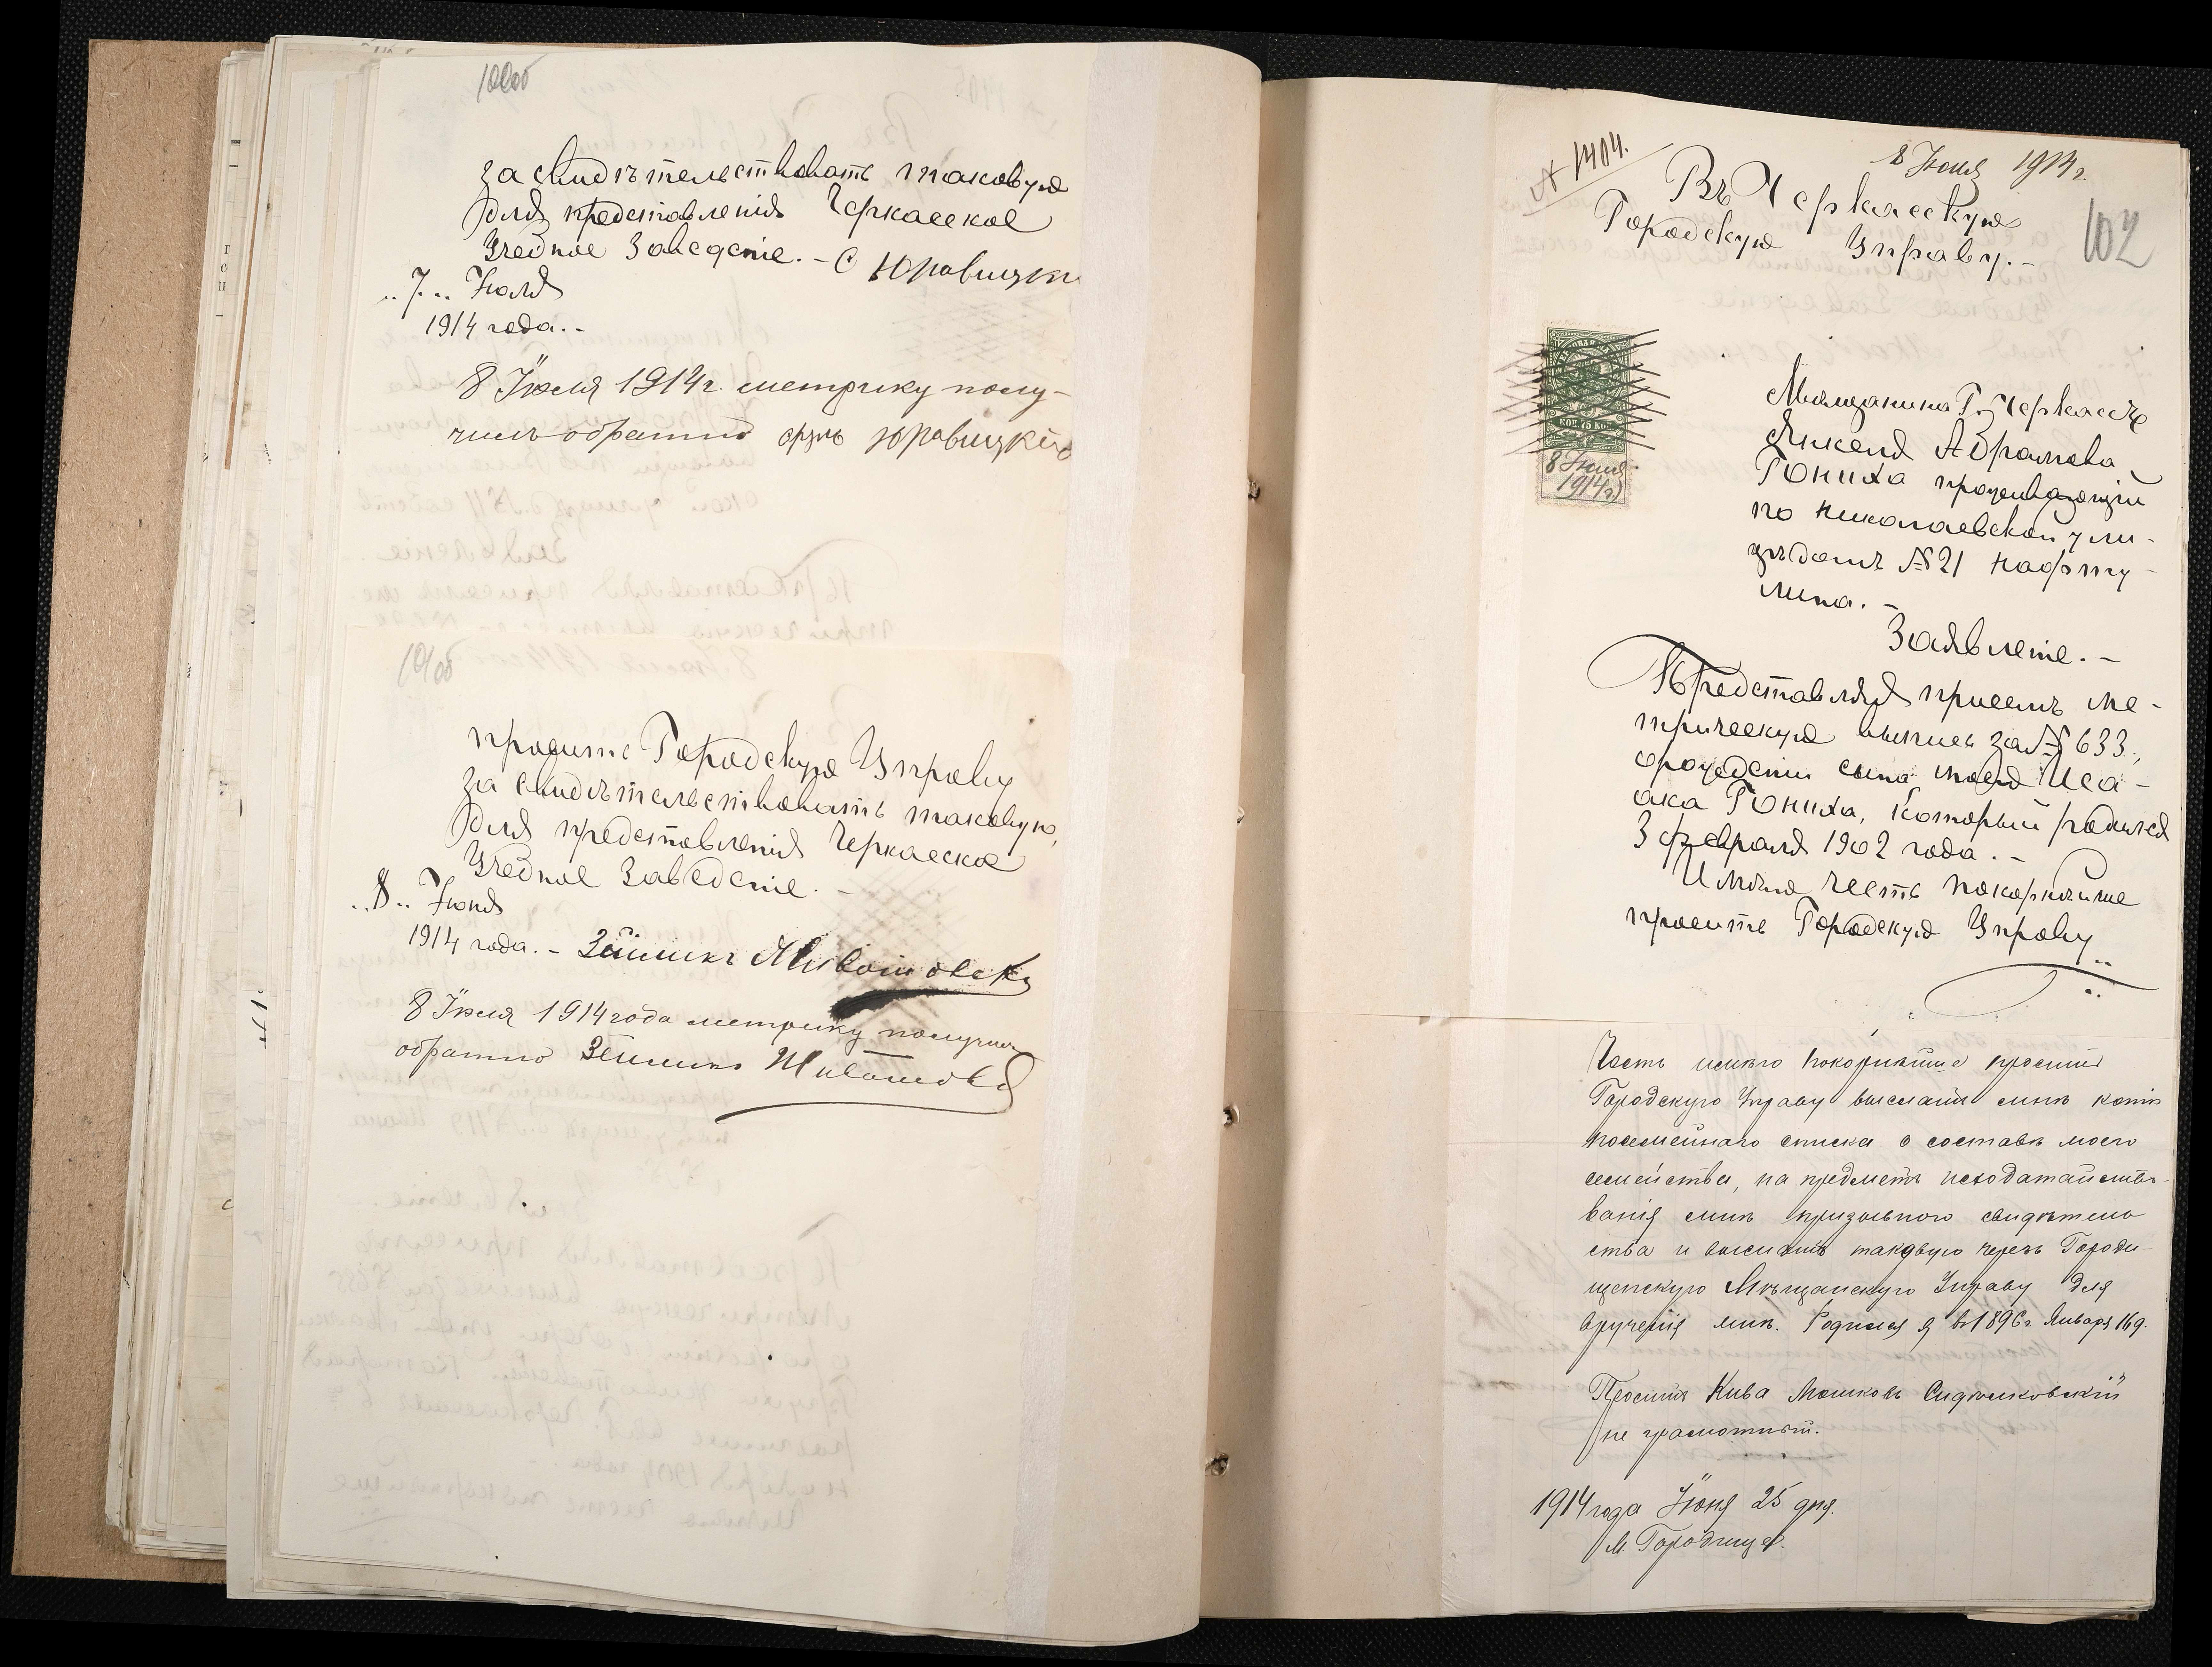 100об
засвидѣтельствовать таковую
для представленія Черкасское
Учебное Заведеніе. - С Юровицкій
"7" Іюля
1914 года. -
8 Іюля 1914 г. метрику полу-
чилъ обратно Юровицкій
101об
просить Городскую Управу
засвидѣтельствовать таковую,
для представленія Черкасское
Учебное Заведеніе. -
"8" Іюля
1914 года. - Зейликъ Животовскі
8 Іюля 1914 года метрику получилъ
обратно Зейликъ Животовскі
№ 1404.
8 Іюля 1914 г.
Въ Черкасскую
Городскую Управу. -
102
КОП 75 КОП
8 Іюля
1914 г
Мѣщанина Г. Черкассъ
Янкеля Абрамова
Гониха проживающій
по Николаевской ули-
цѣ домъ № 21 Нафту-
лина. -
Заявленіе. -
Представляя присемъ ме-
трическую выпись за № 633,
о рожденіи сына моего Иса-
ака Гониха, который родился
3 февраля 1902 года. -
Имѣю честь покорнѣйше
просить Городскую Управу
Честь имѣю покорнѣйше просить
Городскую Управу выслать мнѣ копію
посемейнаго списка о составѣ моего
семейства, на предметъ исходатайство-
ванія мнѣ призывного свидѣтель
ства и выслать таковую черезъ Городи-
щенскую Мѣщанскую Управу для
врученія мнѣ. Родился я въ 1896 г Января 16 д.
Проситъ Кива Мошковъ Сидниковскій
не грамотный.
1914 года Іюня 25 дня.
М. Городище.